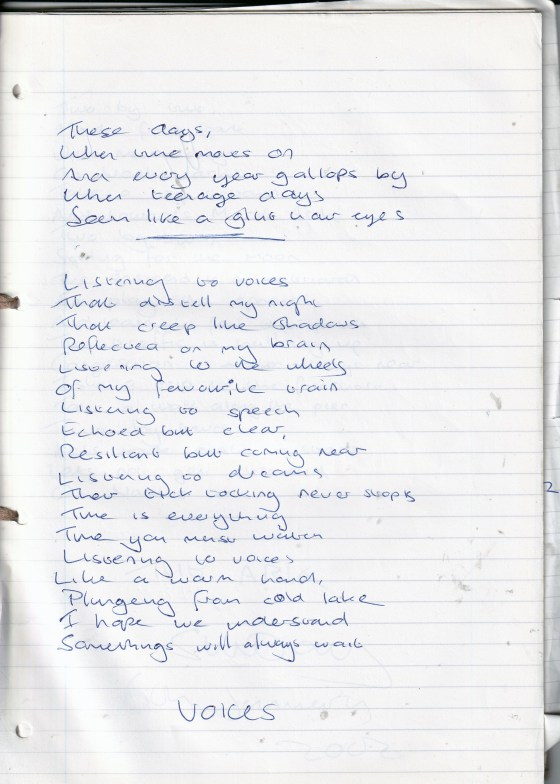 These days,
When time moves on
And every year gallops by
When teenage days
Seem like a glint in our eyes
Listening to voices
That distell my night
That creep like shadows
Reflected on my brain
Listening to the wheels
Of my favourite train
Listening to speech
Echoed but clear,
Resiliant but coming near
Listening to dreams
Their tick tocking never stops
Time is everything
Time you must watch
Listening to voices
Like a warm hand,
Plungeng from cold lake
I hope we understand
Somethings will always wait
VOICES